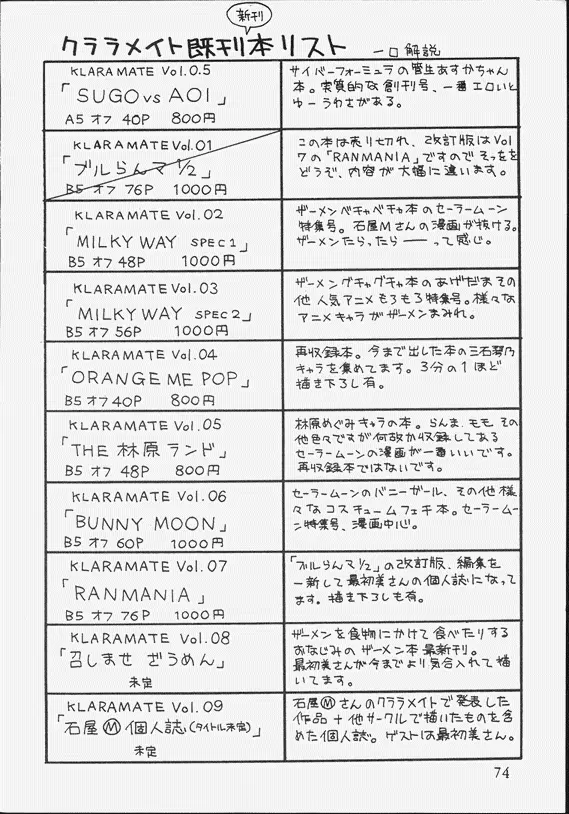 新刊
クララメイト既刊本リスト 一口解説
KLARAMATE Vol.0.5
「SUGO vs AOI」
A5 オフ 40P 800円
サイバーフォーミュラの菅生あすかちゃん
本。実質的な創刊号、一番エロいと
ゆーうわさがある。
KLARAMATE Vol.01
「ブルらんマ1/2」
B5 オフ 76P 1000円
この本は売り切れ、改訂版はVol
7の「RANMANIA」ですのでそっちを
どうぞ、内容が大幅に違います。
KLARAMATE Vol.02
「MILKY WAY SPEC1」
B5 オフ 48P 1000円
ザーメンベチャベチャ本のセーラームーン
特集号。石屋Mさんの漫画が抜ける。
ザーメンたらったらーーって感じ。
KLARAMATE Vol.03
「MILKY WAY SPEC2」
B5 オフ 56P 1000円
ザーメングチャグチャ本のあげだまその
他人気アニメもろもろ特集号。様々な
アニメキャラがザーメンまみれ。
KLARAMATE Vol.04
「ORANGE ME POP」
B5 オフ 40P 800円
再収録本。今まで出した本の三石琴乃
キャラを集めてます。3分の1ほど
描き下ろし有。
KLARAMATE Vol.05
「THE 林原ランド」
B5 オフ 48P 800円
林原めぐみキャラの本。らんま、ももその
他色々ですが何故か収録してある
セーラームーンの漫画が一番いいです。
再収録本ではないです。
KLARAMATE Vol.06
「BUNNY MOON」
B5 オフ 60P 1000円
セーラームーンのバニーガール、その他様
々なコスチュームフェチ本。セーラームー
ン特集号、漫画中心。
KLARAMATE Vol.07
「RANMANIA」
B5 オフ 76P 1000円
「ブルらんマ1/2」の改訂版、編集を
一新して最初美さんの個人誌になって
ます。描き下ろしも有。
KLARAMATE Vol.08
「召しませ ざうめん」
未定
ザーメンを食物にかけて食べたりする
おなじみのザーメン本最新刊。
最初美さんが今までより気合入れて描
いてます。
KLARAMATE Vol.09
「石屋Ⓜ個人誌(タイトル未定)」
未定
石屋Ⓜさんのクララメイトで発表した
作品+他サークルで描いたものを含
めた個人誌。ゲストは最初美さん。
74